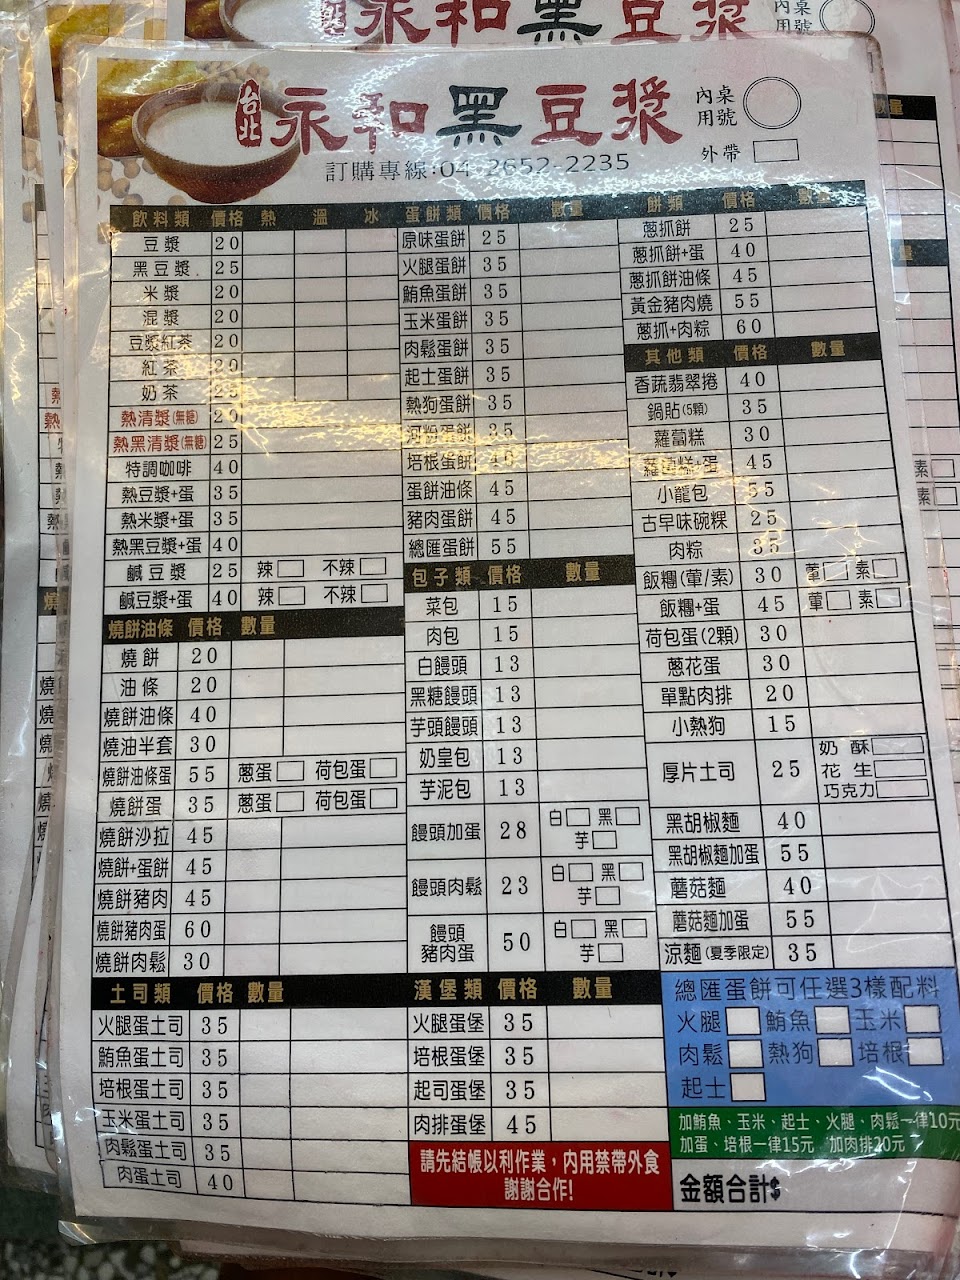 台北 永和黑豆漿
內用 桌號
外帶
訂購專線:04-2652-2235
飲料類 價格 熱 溫 冰
豆漿 20
黑豆漿 25
米漿 20
混漿 20
豆漿紅茶 20
紅茶 20
奶茶 25
熱清漿(無糖) 20
熱黑清漿(無糖) 25
特調咖啡 40
熱豆漿+蛋 35
熱米漿+蛋 35
熱黑豆漿+蛋 40
鹹豆漿 25 辣 不辣
鹹豆漿+蛋 40 辣 不辣
燒餅油條 價格 數量
燒餅 20
油條 20
燒餅油條 40
燒油半套 30
燒餅油條蛋 55 蔥蛋 荷包蛋
燒餅蛋 35 蔥蛋 荷包蛋
燒餅沙拉 45
燒餅+蛋餅 45
燒餅豬肉 45
燒餅豬肉蛋 60
燒餅肉鬆 30
土司類 價格 數量
火腿蛋土司 35
鮪魚蛋土司 35
培根蛋土司 35
玉米蛋土司 35
肉鬆蛋土司 35
肉蛋土司 40
蛋餅類 價格 數量
原味蛋餅 25
火腿蛋餅 35
鮪魚蛋餅 35
玉米蛋餅 35
肉鬆蛋餅 35
起士蛋餅 35
熱狗蛋餅 35
河粉蛋餅 35
培根蛋餅 40
蛋餅油條 45
豬肉蛋餅 45
總匯蛋餅 55
包子類 價格 數量
菜包 15
肉包 15
白饅頭 13
黑糖饅頭 13
芋頭饅頭 13
奶皇包 13
芋泥包 13
饅頭加蛋 28 白 黑 芋
饅頭肉鬆 23 白 黑 芋
饅頭豬肉蛋 50 白 黑 芋
漢堡類 價格 數量
火腿蛋堡 35
培根蛋堡 35
起司蛋堡 35
肉排蛋堡 45
請先結帳以利作業,內用禁帶外食
謝謝合作!
餅類 價格 數量
蔥抓餅 25
蔥抓餅+蛋 40
蔥抓餅油條 45
黃金豬肉燒 55
蔥抓+肉粽 60
其他類 價格 數量
香蔬翡翠捲 40
鍋貼(5顆) 35
蘿蔔糕 30
蘿蔔糕+蛋 45
小籠包 55
古早味碗粿 25
肉粽 35
飯糰(葷/素) 30 葷 素
飯糰+蛋 45 葷 素
荷包蛋(2顆) 30
蔥花蛋 30
單點肉排 20
小熱狗 15
厚片土司 25 奶酥 花生 巧克力
黑胡椒麵 40
黑胡椒麵加蛋 55
蘑菇麵 40
蘑菇麵加蛋 55
涼麵(夏季限定) 35
總匯蛋餅可任選3樣配料
火腿 鮪魚 玉米
肉鬆 熱狗 培根
起士
加鮪魚、玉米、起士、火腿、肉鬆一律10元
加蛋、培根一律15元 加肉排20元
金額合計$